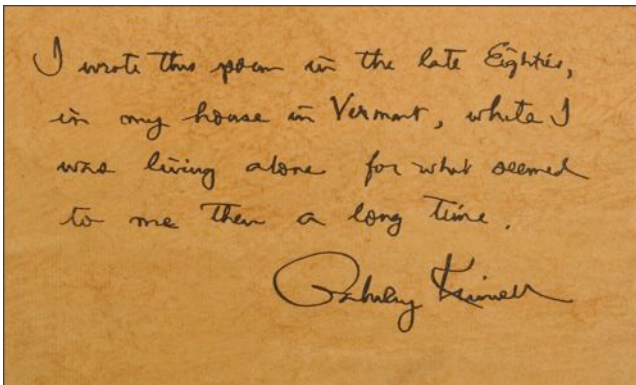 I wrote this poem in the late Eighties,
in my house in Vermont, while I
was living alone for what seemed
to me then a long time.
Galway Kinnell